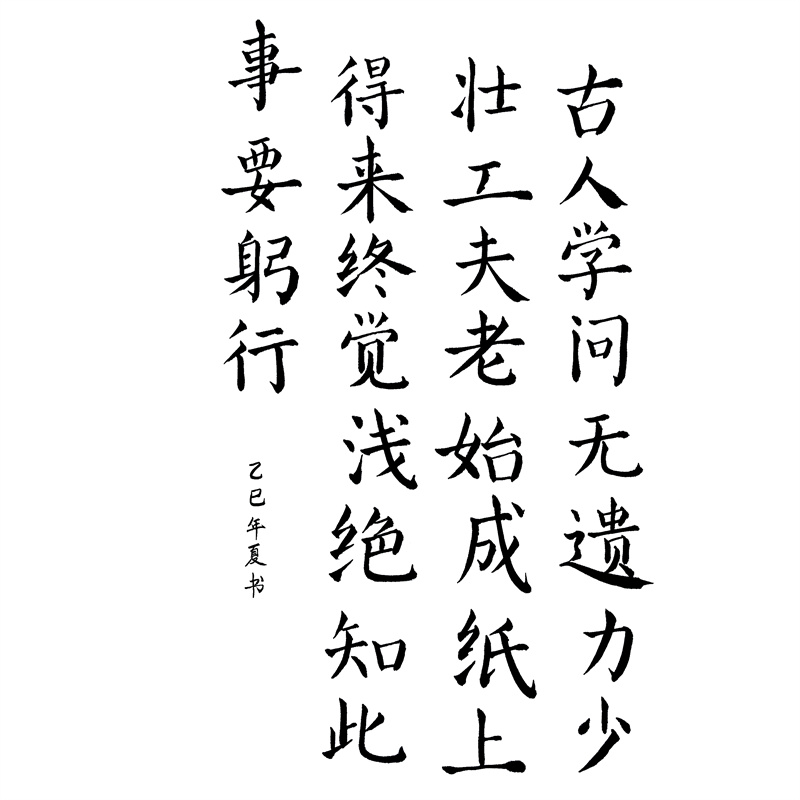 古人学问无遗力少
壮工夫老始成纸上
得来终觉浅绝知此
事要躬行
乙巳年夏书